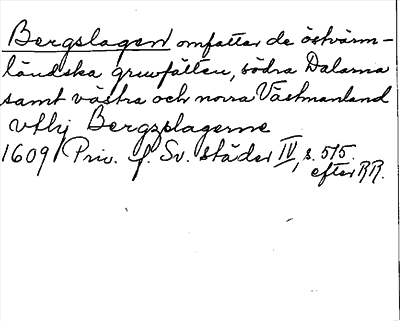 Bergslagen omfattar de östvärm-
ländska gruvfälten, södra Dalarna
samt västra och norra Västmanland
Bergzslagerne
1609 Priv. f. Sv. städer IV, s. 575.
efter RR.